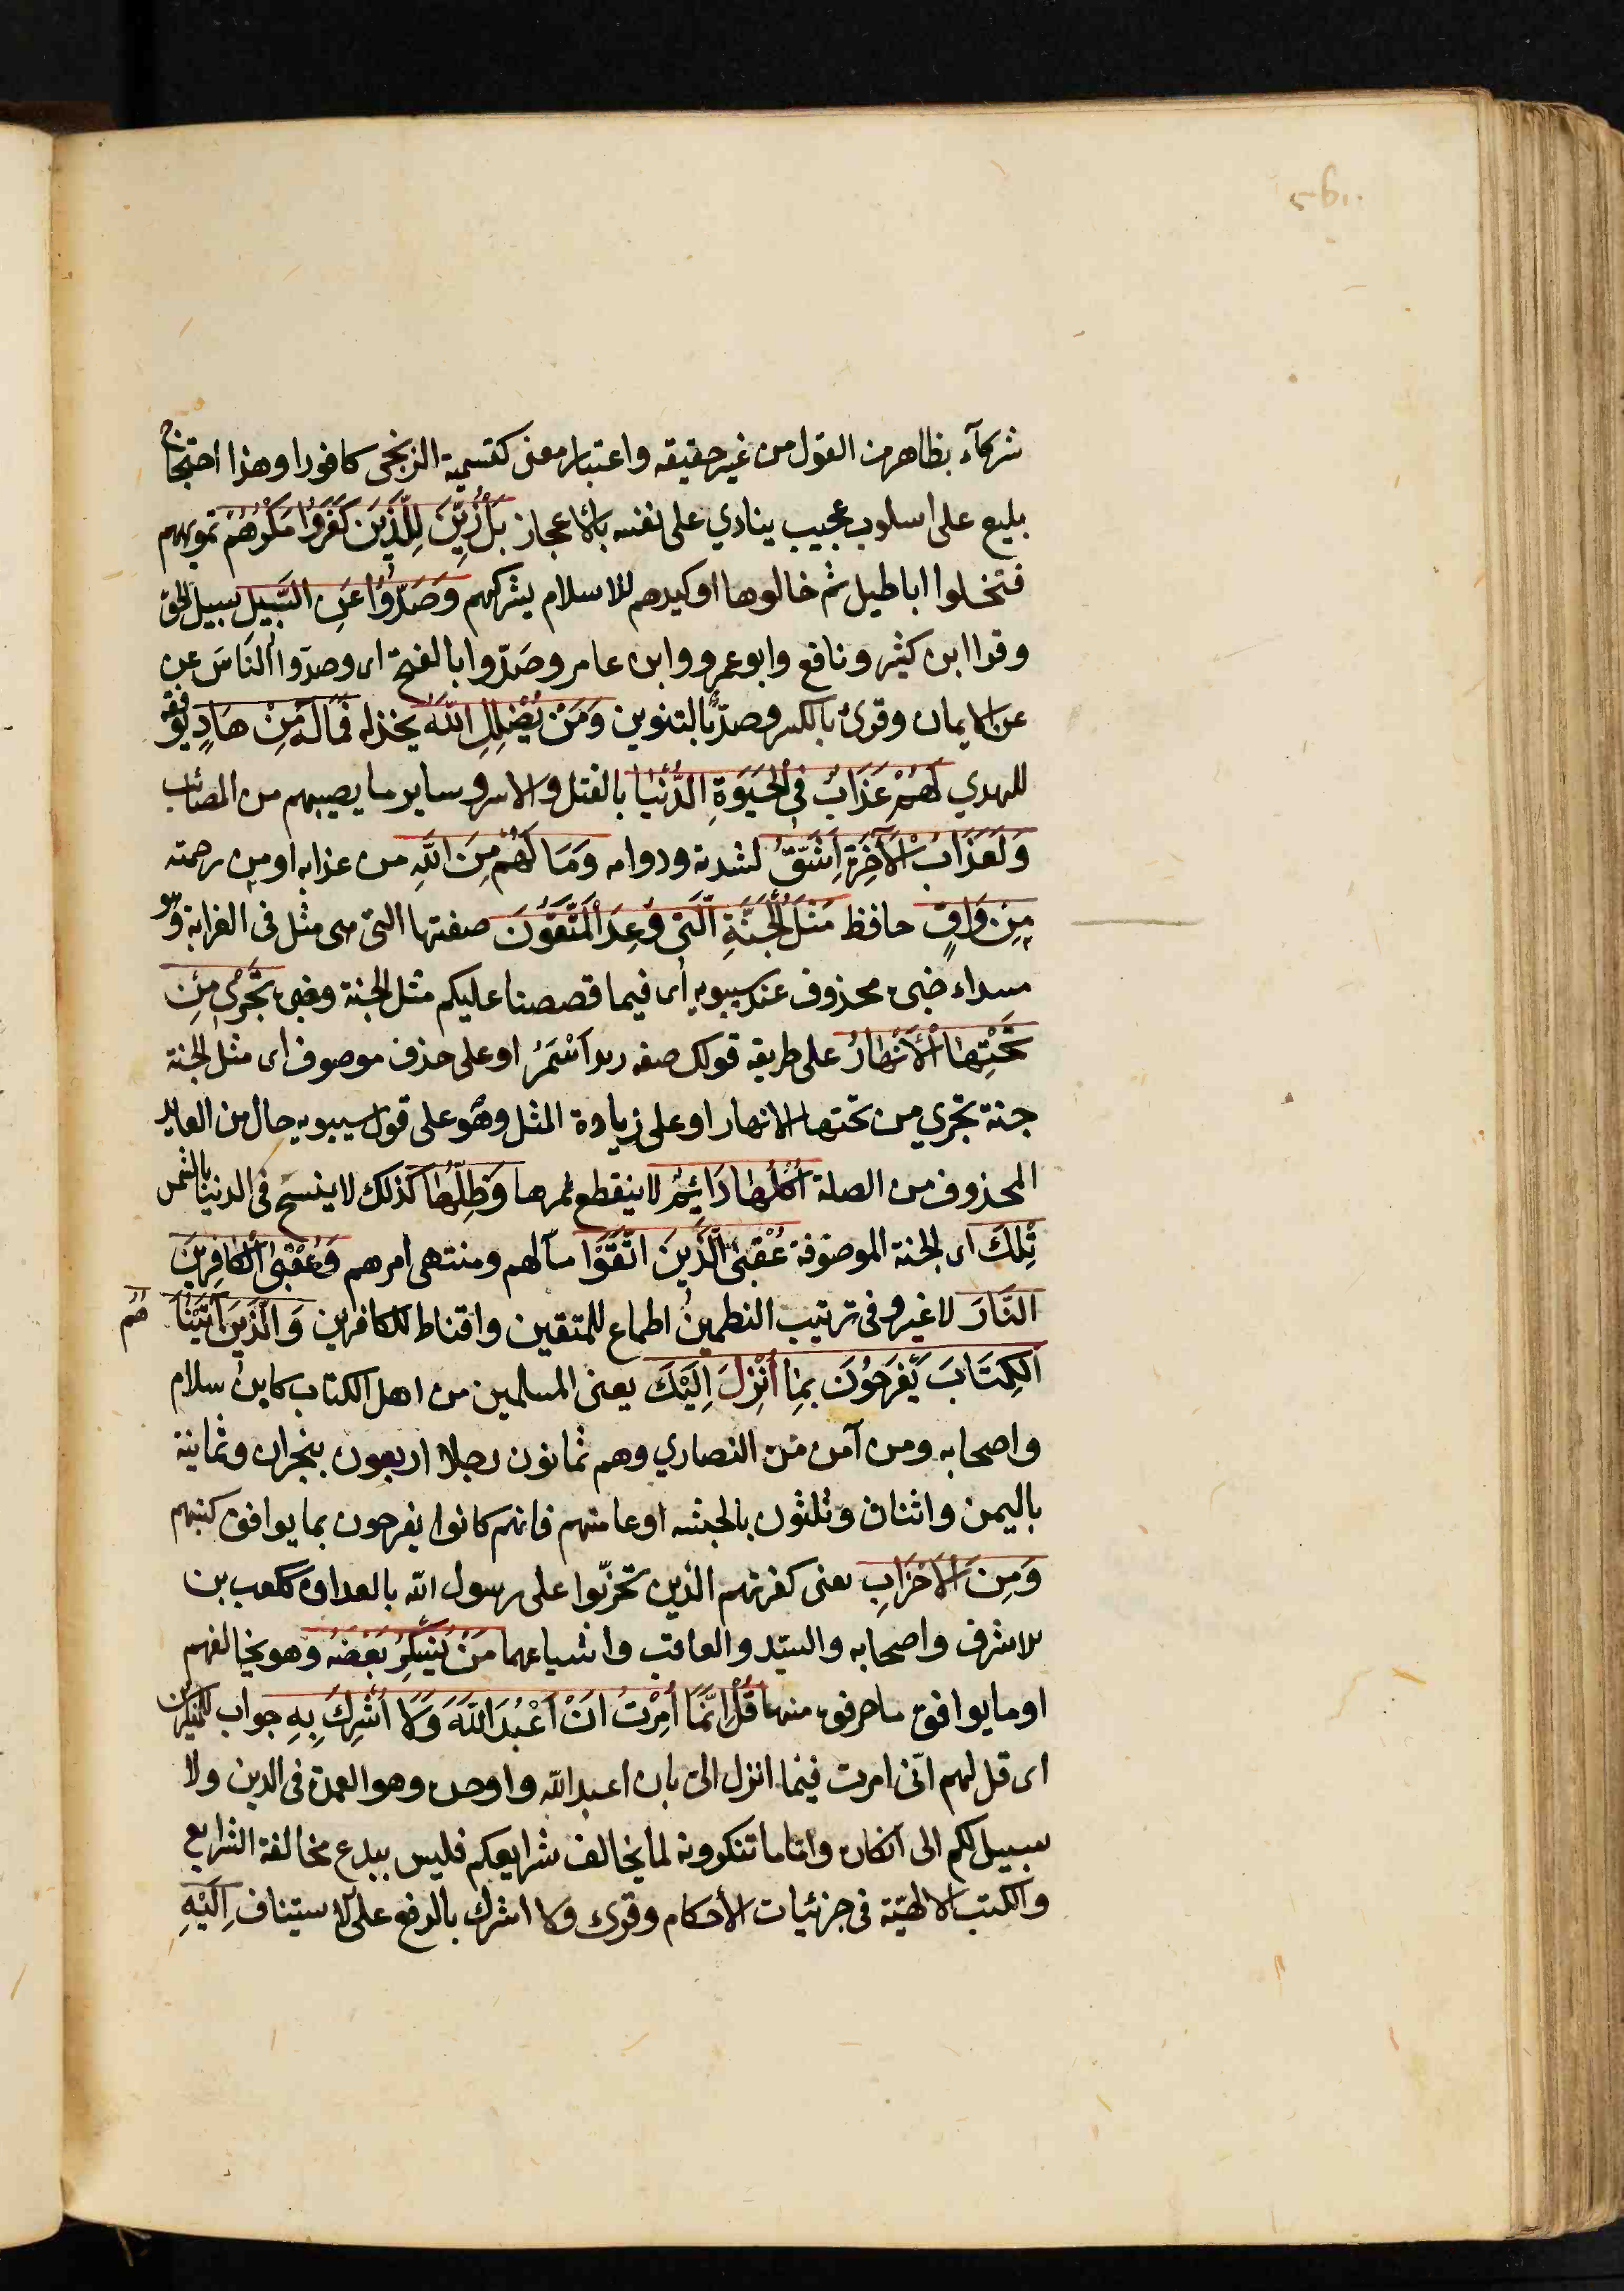 شركآء بظاهر من القول من غير حقيقه واعتبار معنى كتسمية الزنجى كافورا وهذا احتجاج
بليع على اسلوب عجيب ينادي على نفسه بالاعجاز بَلْ زُيِّنَ لِلَّذِينَ كَفَرُوا مَكْرُهُمْ تمويههم
فتخلوا اباطيل ثم خالوها او كيدهم للاسلام بشركهم وَصَدُّوا عَنِ السَّبِيلِ سبيل الحق
وقرا ابن كثير ونافع وابو عمرو وابن عامر وصَدّوا بالفتح اى وصدّوا الناسَ عن
عن الايمان وقرئ بالكسر وصدٌّ بالتنوين وَمَنْ يُضْلِلِ اللَّهُ يخذله فَمَا لَهُ مِنْ هَادٍ يوفقه
للهدي لَهُمْ عَذَابٌ فِى الْحَيَوةِ الدُّنْيَا بالقتل والاسر وساير ما يصيبهم من المصائب
وَلَعَذَابُ الْآخِرَةِ أَشَقُّ لشدته ودوامه وَمَا لَهُمْ مِنَ اللَّهِ من عذابه او من رحمته
مِنْ وَاقٍ حافظ مَثَلُ الْجَنَّةِ الَّتِى وُعِدَ الْمُتَّقُونَ صفتها التى هى مثل فى الغرابة وهو
مبتداء خبره محذوف عند سيبويه اى فيما قصصنا عليكم مثل الجنة وقيل خبره تَجْرِى مِنْ
تَحْتِهَا الْأَنْهَارُ على طريقه قولك صفه زيد اَسْمَرُ او على حذف موصوف اى مثل الجنة
جنة تجري من تحتها الانهار او على زيادة المثل وهو على قول سيبويه حال من العايد
المحذوف من الصلة أُكُلُهَا دَائِمٌ لا ينقطع ثمرها وَظِلُّهَا كذلك لا ينسخ فى الدنيا بالشمس
تِلْكَ اى الجنة الموصوفة عُقْبَى الَّذِينَ اتَّقَوْا مآلهم ومنتهى امرهم وَعُقْبَى الْكَافِرِينَ
النَّارُ لا غير وفى ترتيب النظمين اطماع للمتقين واقناط للكافرين وَالَّذِينَ آتَيْنَا هُمُ
الْكِتَابَ يَفْرَحُونَ بِمَا أُنْزِلَ إِلَيْكَ يعنى المسلمين من اهل الكتاب كابن سلام
واصحابه ومن آمن من النصاري وهم ثمانون رجلا اربعون بنجران وثمانية
باليمن واثنان وثلثون بالحبشه او عامتهم فانهم كانوا يفرحون بما يوافق كتبهم
وَمِنَ الْأَحْزَابِ يعنى كفرتهم الذين تحزّبوا على رسول الله بالعداوه ككعب بن
الاشرف واصحابه والسيّد والعاقب واشياعهما مَنْ يُنْكِرُ بَعْضَهُ وهو يخالفهم
او ما يوافق ما حرفوه منها قُلْ إِنَّمَا أُمِرْتُ أَنْ أَعْبُدَ اللَّهَ وَلَا أُشْرِكَ بِهِ جواب للمنكرين
اى قل لهم انى امرت فيما انزل الىّ بان اعبد الله واوحده وهو العمدة فى الدين ولا
سبيل لكم الى انكاره واما ما تنكرونه لما يخالف شرايعكم فليس ببدع مخالفة الشرايع
والكتب الالهيّة فى جزئيات الأحكام وقرئ ولا اشرك بالرفع على الاستيناف إِلَيْهِ